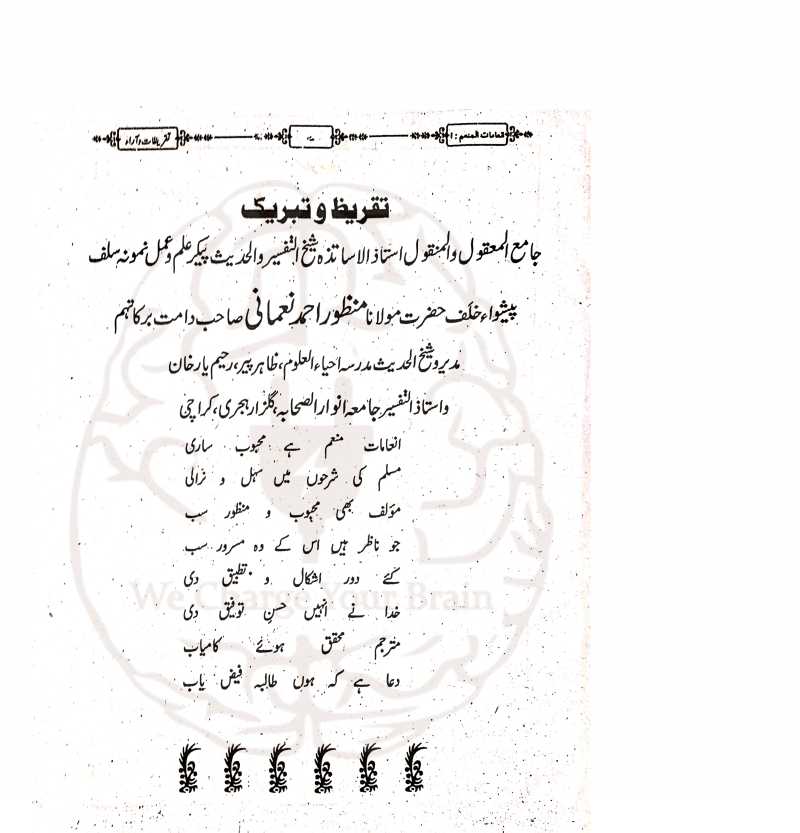 انعامات المنعم : ۱
تقریظات و آراء
تقریظ و تبریک
جامع المعقول والمنقول استاذ الاساتذہ شیخ التفسیر والحدیث پیکر علم و عمل نمونہ سلف
پیشواء خلف حضرت مولانا منظور احمد نعمانی صاحب دامت برکاتہم
مدیر و شیخ الحدیث مدرسہ احیاء العلوم، ظاہر پیر، رحیم یار خان
و استاذ التفسیر جامعہ انوار الصحابہ، گلزار ہجری، کراچی
انعامات منعم ہے محبوب ساری
مسلم کی شرحوں میں سہل و نرالی
مؤلف بھی محبوب و منظور سب
جو ناظر ہیں اس کے وہ مسرور سب
کئے دور اشکال و تطبیق دی
خدا نے انہیں حسنِ توفیق دی
مترجم محقق ہوئے کامیاب
دعا ہے کہ ہوں طالبہ فیض یاب
We Charge Your Brain